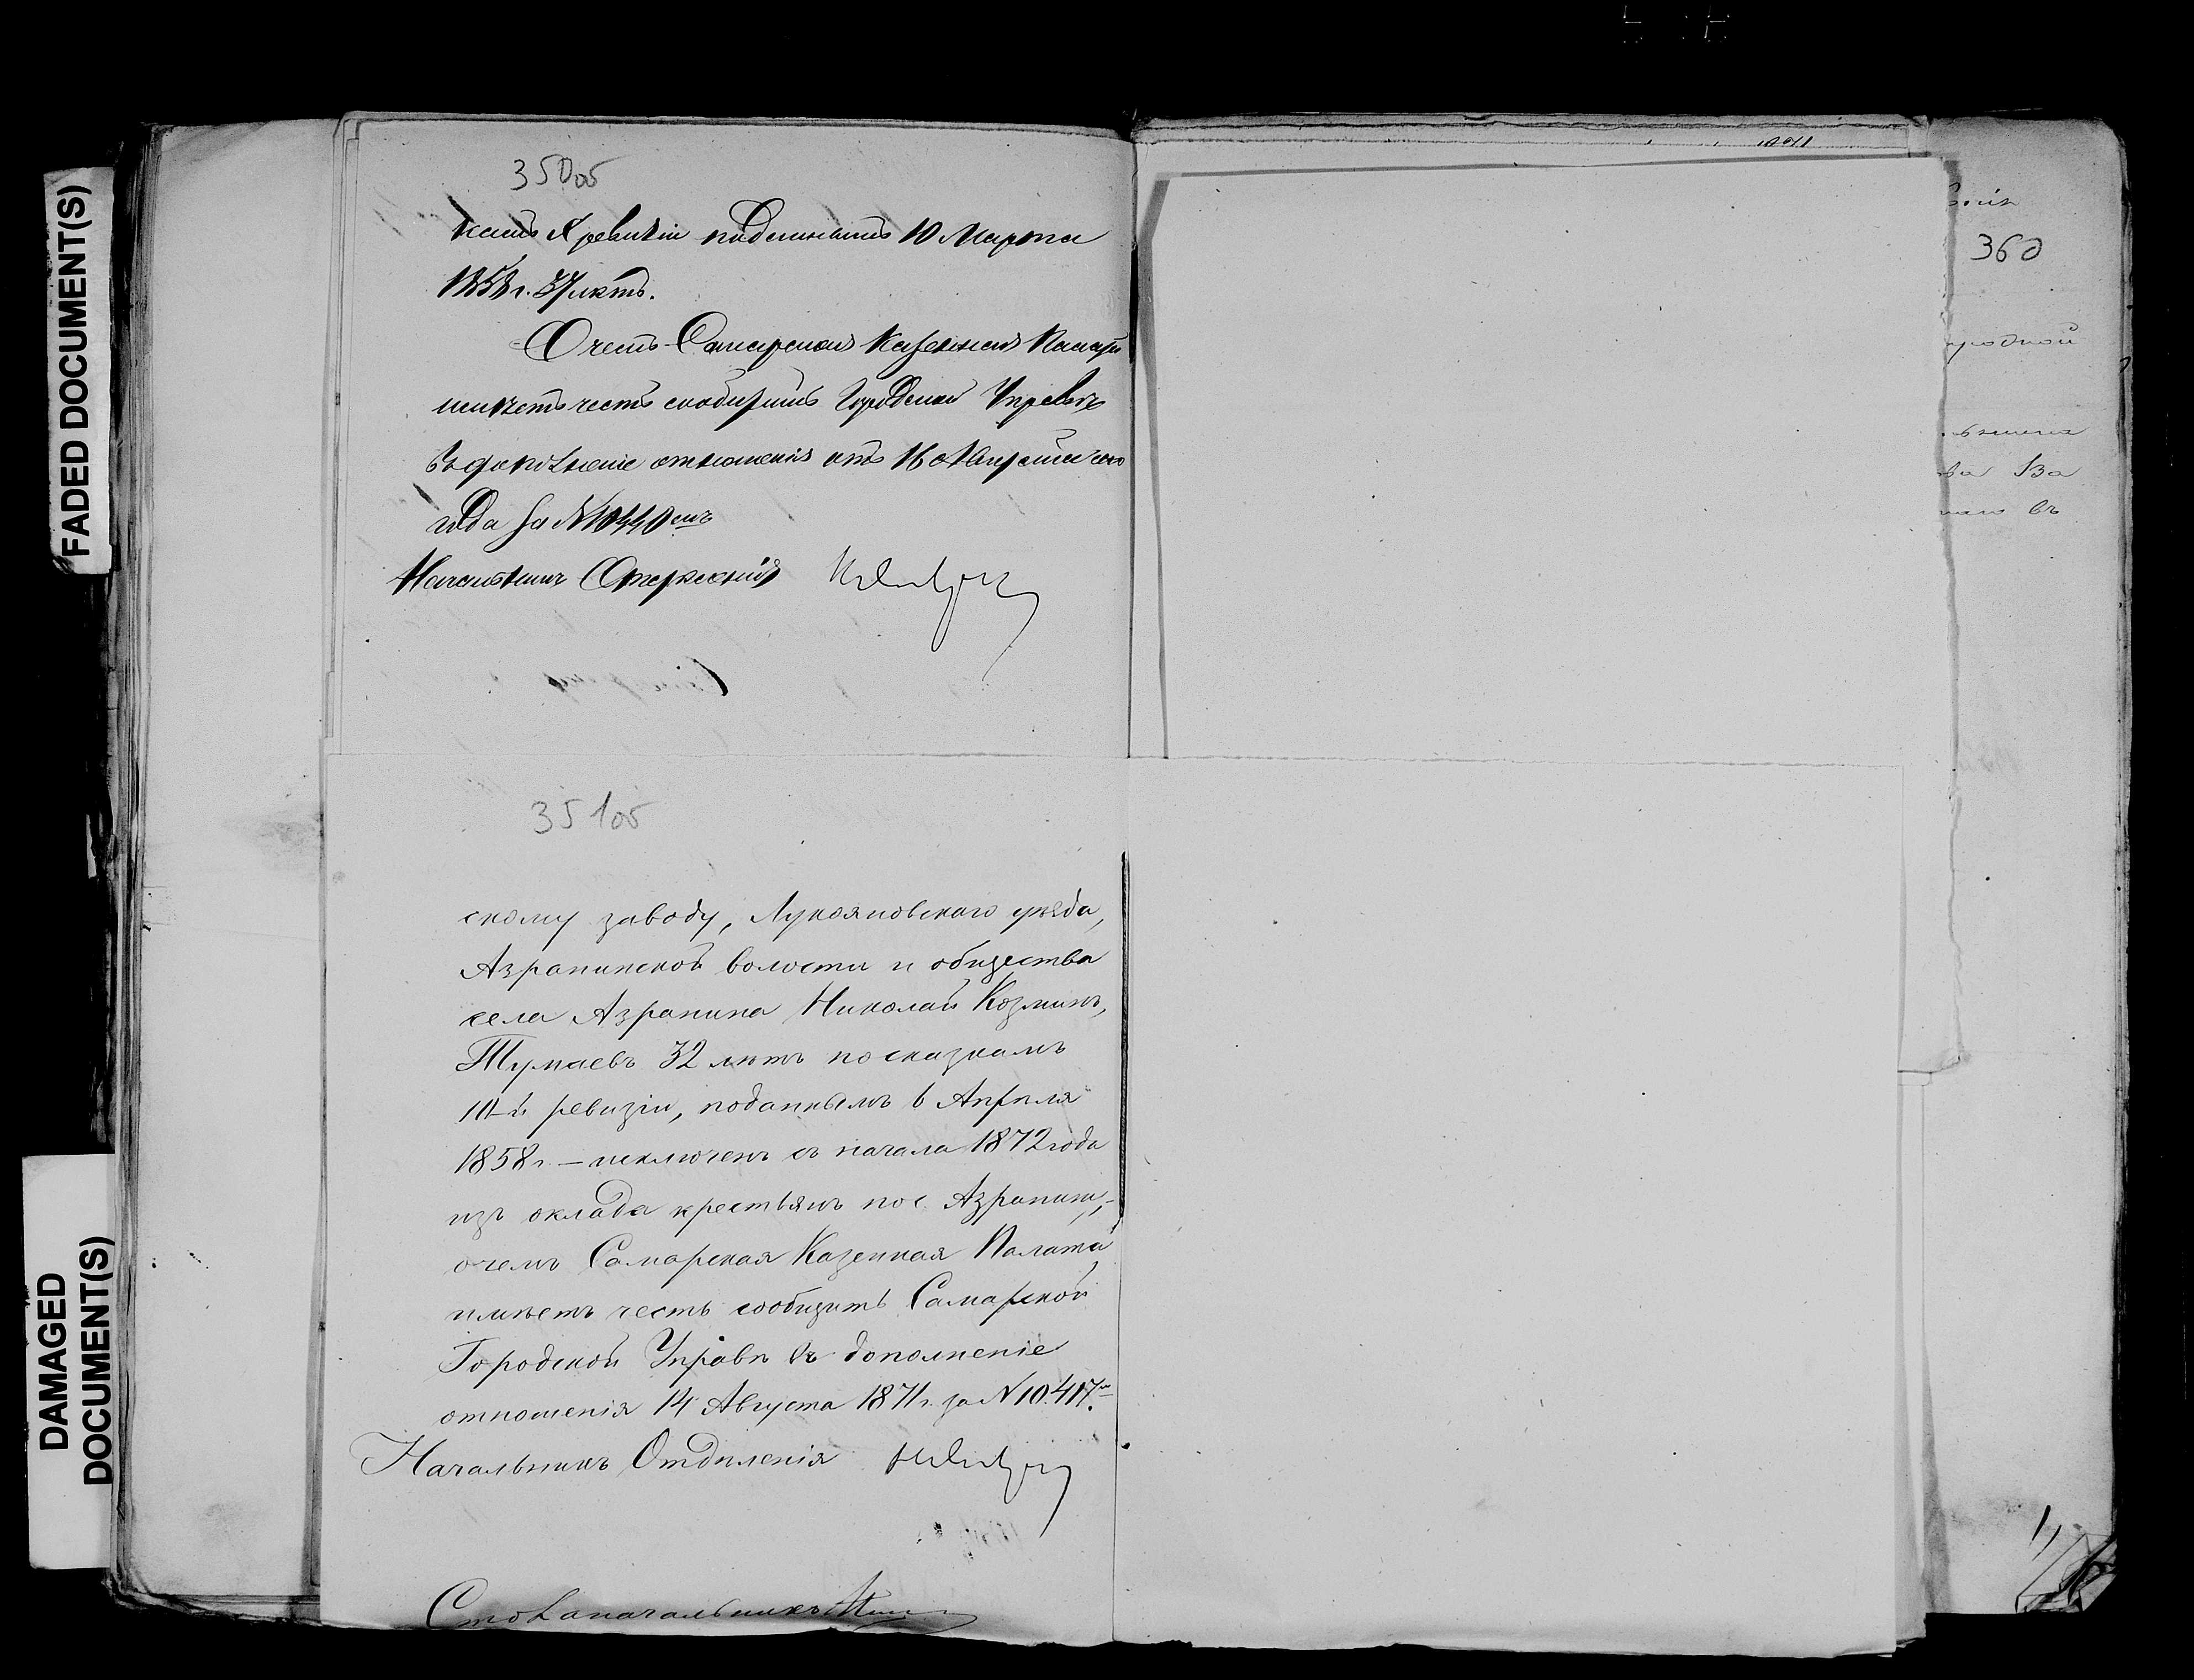 FADED DOCUMENT(S)
DAMAGED
DOCUMENT(S)
350об
камъ X ревизіи поданнымъ 10 Марта
1858 г. 37 лѣтъ.
О чемъ Самарская Казенная Палата
имѣетъ честь сообщить Городской Управѣ
въ дополненіе отношенія отъ 16 сего
года за №
Начальникъ Отдѣленія
351об
скому заводу, Лукояновскаго уѣзда,
Азрапинской волости и общества
села Азрапина Николай Козминъ,
Тумаевъ 32 лѣтъ по сказкамъ
10-й ревизіи, поданнымъ 6 Апрѣля
1858 г. – исключенъ съ начала 1872 года
изъ оклада крестьянъ по с. Азрапину,-
о чемъ Самарская Казенная Палата
имѣетъ честь сообщить Самарской
Городской Управѣ въ дополненіе
отношенія 14 Августа 1871 г. за № 10.417.
Начальникъ Отдѣленія
Столоначальникъ
360